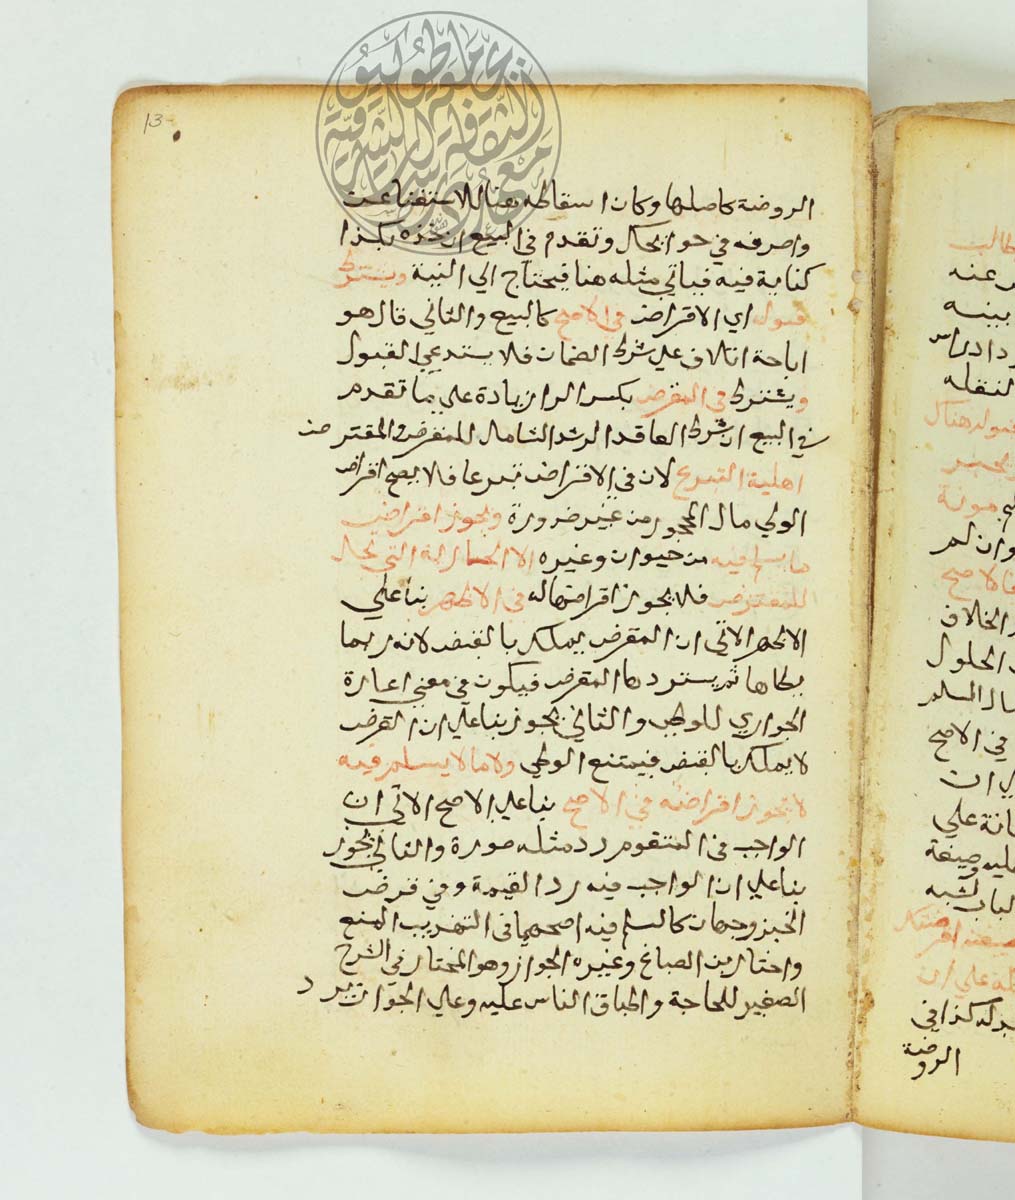 الروضة كاصلها وكان اسقاطه هنا للاستغناء عنه
واصرفه في حوايجك وتقدم في البيع ان خذه بكذا
كناية فيه فياتي مثله هنا فيحتاج الي النية ويشترط
قبوله اي الاقراض في الاصح كالبيع والثاني قال هو
اباحة اتلاف علي شرط الضمان فلا يستدعي القبول
ويشترط في المقرض بكسر الرا زيادة علي ما تقدم
في البيع ان شرط العاقد الرشد الشامل للمقرض والمقترض من
اهلية التبرع لان في الاقراض تبرعا فلا يصح اقراض
الولي مال المحجور من غير ضرورة ويجوز اقراض
ما يسلم فيه من حيوان وغيره الا الجارية التي تحل
للمقترض فلا يجوز اقراضها له في الاظهر بنا علي
الاظهر الاتي ان المقرض يملك بالقبض لانه ربما
يطاها ثم يستردها المقرض فيكون في معني اعارة
الجواري للوطي والثاني يجوز بنا علي ان القرض
لا يملك بالقبض فيمتنع الوطي ولا ما لا يسلم فيه
لا يجوز اقراضه في الاصح بنا علي الاصح الاتي ان
الواجب في المتقوم رد مثله صورة والثاني يجوز
بنا علي ان الواجب فيه رد القيمة وفي قرض
الخبز وجهان كالسلم فيه اصحهما في التهذيب المنع
واختار بن الصباغ وغيره الجواز وهو المختار في الشرح
الصغير للحاجة واطباق الناس عليه وعلي الجواز يرد
13
طالب
عنه
بينه
النقله
قبوله هنالك
مونة
وان لم
فالاصح
الخلاف
الحلول
المسلم
في الاصح
ان
علي
عليه وصيغة
لشبه
صيغته اقرضتك
علي ان
كذا في
الروضة